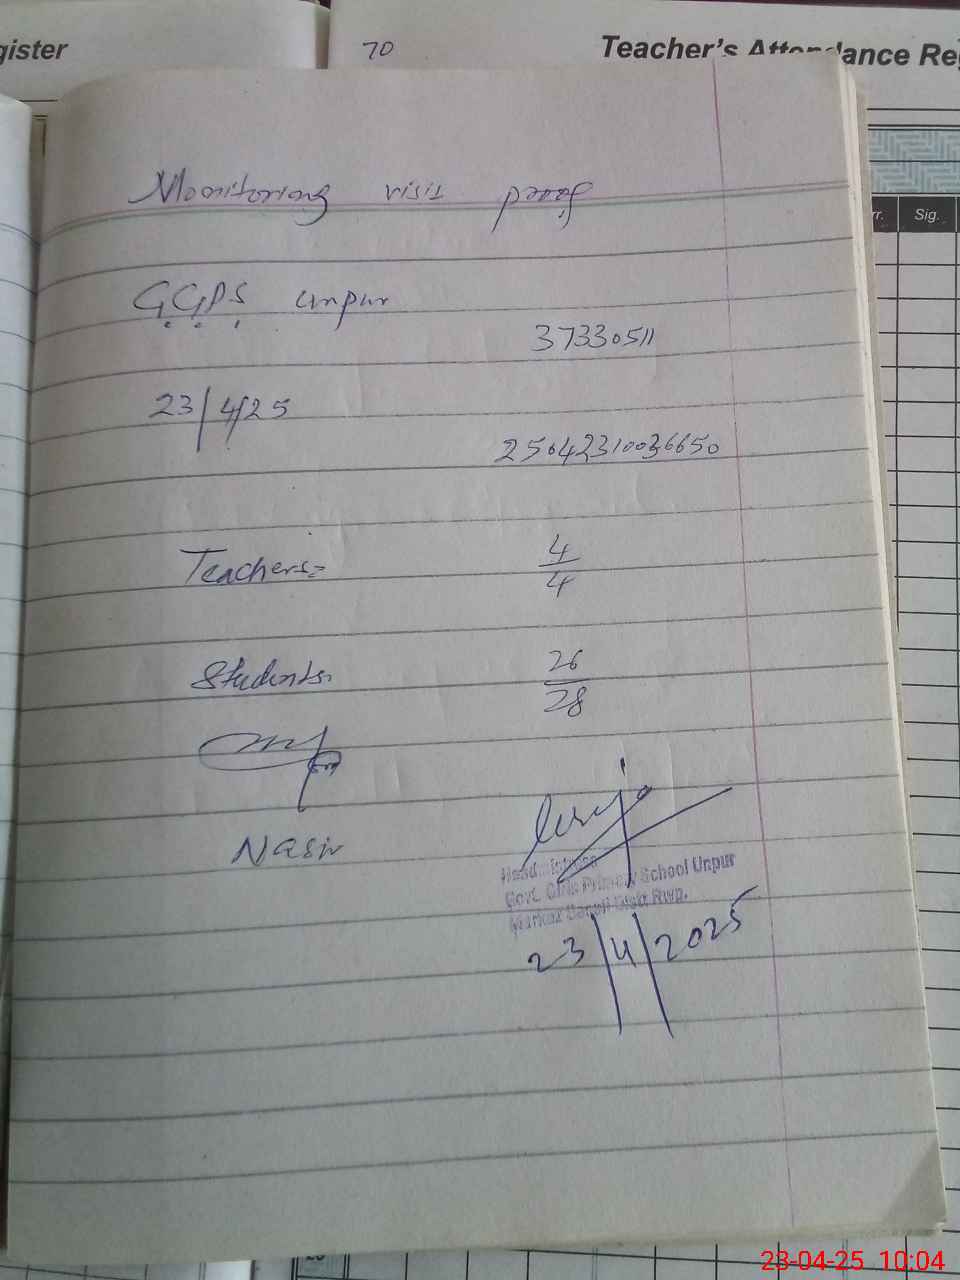 gister
70
Teacher's Attendance Reg
rr. Sig.
Monitoriong visit proof
G.G.P.S Unpur
37330511
23/4/25
25042310036650
Teachers= 4/4
Students. 26/28
Nasir
Headmistress
Govt. Girls Primary School Unpur
Markaz Distt Rwp.
23/4/2025
23-04-25 10:04